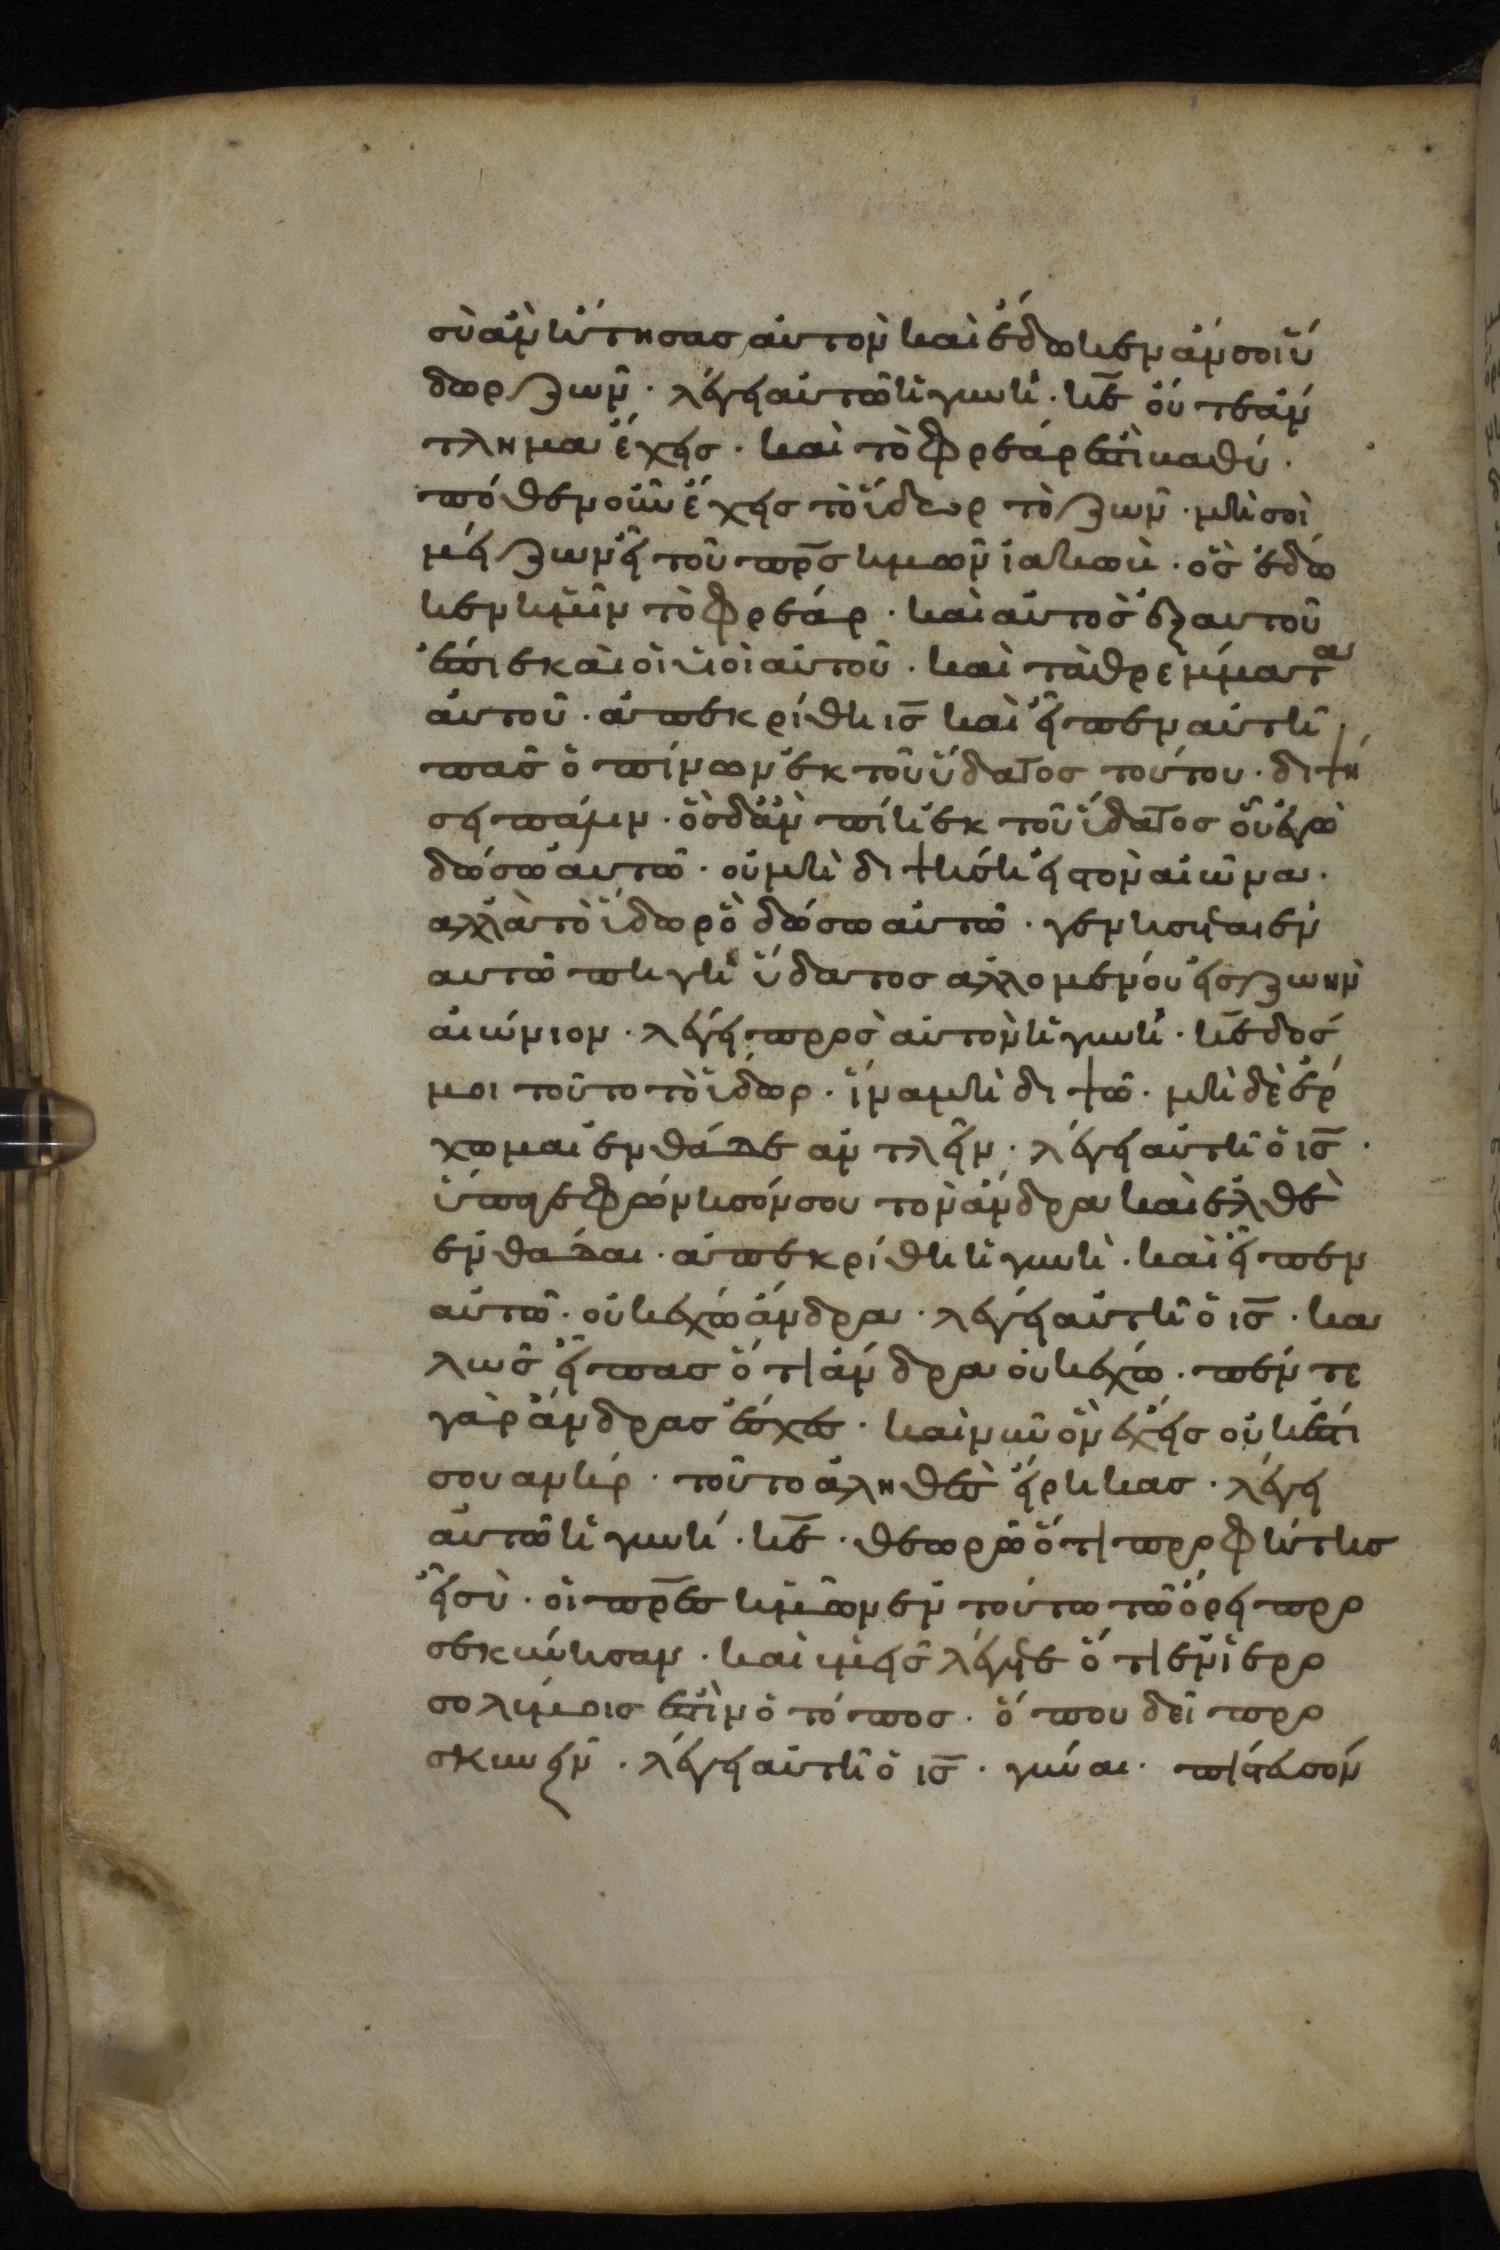 σὺ ἂν ἤτησας αὐτὸν καὶ ἔδωκεν ἄν σοι ὕ
δωρ ζῶν · λέγει αὐτῶ ἡ γυνή · κ̅ε̅ οὔτε ἄν
τλημα ἔχεις · καὶ τὸ φρέαρ ἐστὶ βαθύ ·
πόθεν οὖν ἔχεις τὸ ὕδωρ τὸ ζῶν · μὴ σὺ
μείζων εἶ τοῦ π̅ρ̅ς̅ ἡμῶν ἰακώβ · ὃς ἔδω
κεν ἡμῖν τὸ φρέαρ · καὶ αὐτὸς ἐξ αὐτοῦ
ἔπιε καὶ οἱ υἱοὶ αὐτοῦ · καὶ τὰ θρέμματα
αὐτοῦ · ἀπεκρίθη ι̅ς̅ καὶ εἶπεν αὐτῆ ·
πᾶς ὁ πίνων ἐκ τοῦ ὕδατος τούτου · διψή
σει πάλιν · ὃς δ' ἂν πίη ἐκ τοῦ ὕδατος οὗ ἐγὼ
δώσω αὐτῶ · οὐ μὴ διψήση εἰς τὸν αἰῶνα ·
ἀλλὰ τὸ ὕδωρ ὃ δώσω αὐτῶ · γενήσεται ἐν
αὐτῶ πηγὴ ὕδατος ἁλλομένου εἰς ζωὴν
αἰώνιον · λέγει πρὸς αὐτὸν ἡ γυνή · κ̅ε̅ δός
μοι τοῦτο τὸ ὕδωρ · ἵνα μὴ διψῶ · μὴ δὲ ἔρ
χωμαι ἐνθάδε ἀντλεῖν · λέγει αὐτῆ ὁ ι̅ς̅ ·
ὕπαγε φώνησόν σου τὸν ἄνδρα καὶ ἐλθὲ
ἐνθάδαι · ἀπεκρίθη ἡ γυνὴ · καὶ εἶπεν
αὐτῶ · οὐκ ἔχω ἄνδρα · λέγει αὐτῆ ὁ ι̅ς̅ · κα
λῶς εἶπας ὅτι ἄνδρα οὐκ ἔχω · πέντε
γὰρ ἄνδρας ἔσχες · καὶ νῦν ὃν ἔχεις οὐκ ἔστι
σου ἀνήρ · τοῦτο ἀληθὲς εἴρηκας · λέγει
αὐτῶ ἡ γυνή · κ̅ε̅ · θεωρῶ ὅτι προφήτης
εἶ σύ · οἱ π̅ρ̅ε̅ς̅ ἡμῶν ἐν τούτω τῶ ὄρει προ
σεκύνησαν · καὶ ὑμεῖς λέγετε ὅτι ἐν ἱερο
σολύμοις ἐστὶν ὁ τόπος · ὅπου δεῖ προ
σκυνεῖν · λέγει αὐτῆ ὁ ι̅ς̅ · γύναι · πίστευσόν